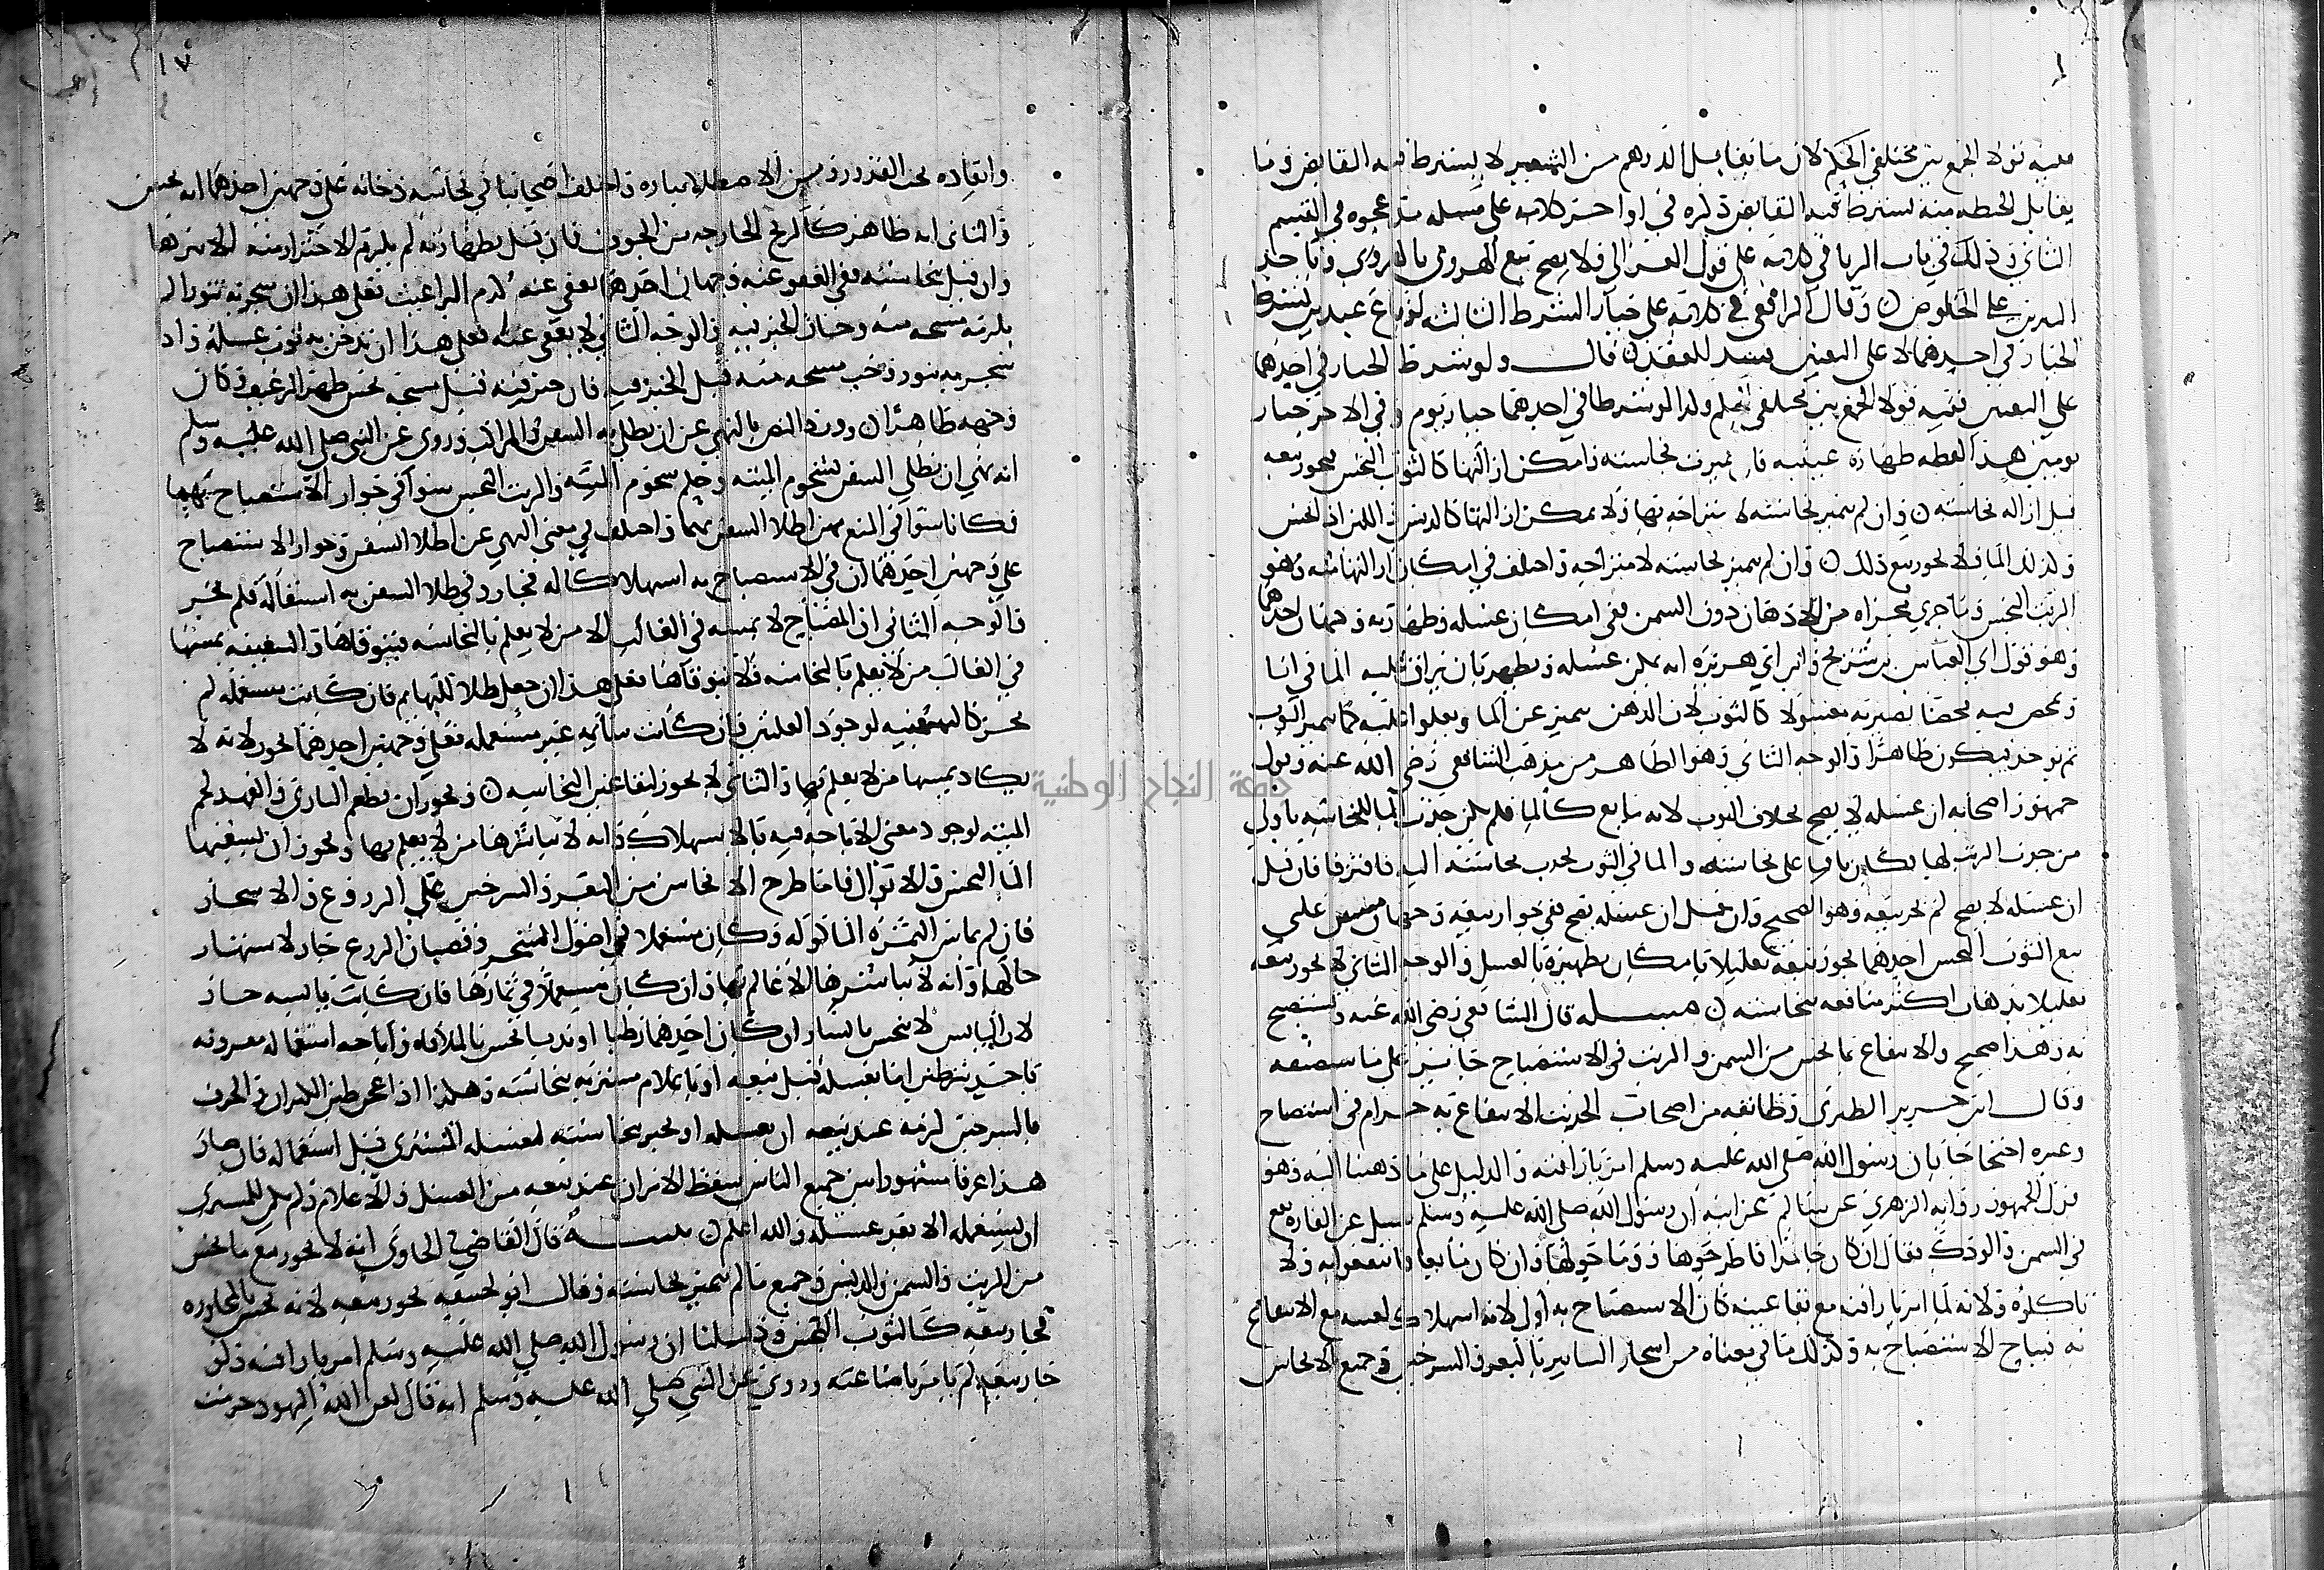 ففيه قولا الجمع بين مختلفي الحكم لان ما يقابل الدرهم من الشعير لا يشترط فيه التقابض وما
يقابل الحنطه منه يشترط فيه التقابض ذكره في اواخر كلامه على مسله مد عجوه في القسم
الثاني وذلك في باب الربا في كلامه على قول الغزالي فلا يصح بيع الهروي بالهروي
على الخلوص وقال الرافعي في كلامه على خيار الشرط الثالثه لو باع عبدين بشرط
الخيار في احدهما لا على التعيين فسد العقد قال ولو شرط الخيار في احدهما
على التعيين ففيه قولا الجمع بين مختلفي الحكم وكذا لو شرط في احدهما خيار يوم وفي الاخر خيار
يومين هذا لفظه طهارة عينيه فان تميزت نجاسته وامكن ازالتها كالثوب النجس يجوز بيعه
قبل ازاله نجاسته وان لم تتميز نجاسته لامتزاجه بها ولا يمكن ازالتها كالدبس واللبن اذا نجس
وكذلك الما فلا يجوز بيع ذلك وان لم تتميز نجاسته لامتزاجه واختلف في امكان ازالتها منه وهو
الزيت النجس وما جري مجراه من الادهان دون السمن ففي امكان غسله وطهارته وجهان احدهما
وهو قول ابي العباس بن سريج وابن ابي هريره انه يمكن غسله وتطهيره بان يراق عليه الما في انا
ويمخض فيه مخضا يصير به مغسولا كالثوب لان الدهن يتميز عن الما ويعلوا عليه كما يتميز الثوب
ثم يوخذ فيكون طاهرا والوجه الثاني وهو الظاهر من مذهب الشافعي رضي الله عنه وقول
جمهور اصحابه ان غسله لا يصح بخلاف الثوب لانه مايع كالما فلم يكن جذب الما للنجاسه باولي
من جذب الزيت لها فكان باقيا على نجاسته والما في الثوب يجذب نجاسته اليه فافترقا فان قيل
ان غسله لا يصح لم يجز بيعه وهو الصحيح وان قيل ان غسله يصح ففي جواز بيعه وجهان
بيع الثوب النجس احدهما يجوز بيعه تعليلا بامكان تطهيره بالغسل والوجه الثاني لا يجوز بيعه
تعليلا بذهاب اكثر منافعه بنجاسته مسله قال الشافعي رضي الله عنه ويستصبح
به وهذا صحيح والانتفاع بما نجس من السمن والزيت في الاستصباح جايز
وقال ابن جرير الطبري وطائفه من اصحاب الحديث الانتفاع به حرام في استصباح
وغيره احتجاجا بان رسول الله صلى الله عليه وسلم امر باراقته والدليل على ما ذهبنا اليه وهو
قول الجمهور روايه الزهري عن سالم عن ابيه ان رسول الله صلى الله عليه وسلم سيل عن الفاره تقع
في السمن والودك فقال ان كان جامدا فاطرحوها وما حولها وان كان مايعا فانتفعوا به ولا
تاكلوه ولانه لما امر باراقته مع بقا عينه كان الاستصباح به اولى لانه استهلاك لعينه مع الانتفاع
به فيباح الاستصباح به وكذلك ما في معناه من اسجار التنانير بالبعر والسرجين وجميع الانجاس
١٧
وايقاده تحت القدور ومن الاصطلا بناره واختلف اصحابنا في نجاسه دخانه على وجهين احدهما انه نجس
والثاني انه طاهر كالريح الخارجه من الجوف فان قيل بطهارته لم يلزم الاحتراز منه
وان قيل بنجاسته ففي العفو عنه وجهان احدهما يعفى عنه كدم البراغيث فعلى هذا ان سجر به تنورا لم
يلزمه مسحه منه وجاز الخبز فيه والوجه الثاني لا يعفى عنه فعلى هذا ان تدخن به ثوب غسله واذا
سجر به تنور وجب مسحه منه قبل الخبز فيه فان خبز فيه قبل مسحه نجس ظهر الرغيف وكان
وجهه طاهرا وورد النص بالنهي عن ان يطلى به السفن والمراكب وروى عن النبي صلى الله عليه وسلم
انه نهى ان تطلي السفن بشحوم الميته وحكم شحوم الميته والزيت النجس سوا في جواز الاستصباح بهما
فكانا سوا في المنع من اطلا السفن بهما واختلف في معنى النهي عن اطلا السفن وجواز الاستصباح
على وجهين احدهما ان في الاستصباح به استهلاكا له فجاز وفي طلا السفن به استبقا له فلم يجز
والوجه الثاني ان المصباح لا يمسه في الغالب الا من لا يعلم بالنجاسه فيتوقاها والسفينه يمسها
في الغالب من لا يعلم بالنجاسه فلا يتوقاها فعلى هذا ان جعل طلا للبهايم فان كانت مستعمله لم
يجز كالسفينه لوجود العلتين وان كانت سائمه غير مستعمله فعلى وجهين احدهما يجوز لانه لا
يكاد يمسها من لا يعلم بها والثاني لا يجوز لبقا عين النجاسه ويجوز ان يطعم البازي والفهد لحم
الميته لوجود معنى الاباحه فيه بالاستهلاك وانه لا يباشرها من لا يعلم بها ويجوز ان يسقيها
الما النجس والابوال فاما طرح الانجاس من البعر والسرجين على الزروع والاشجار
فان لم يماس الثمره الماكوله وكان مستعملا في اصول الشجر وقصبان الزرع جاز لاشتهار
حالها وانه لا يباشرها الا عالم بها وان كان مستعملا في ثمارها فان كانت يابسه جاز
لان اليابس لا ينجس باليابس وان كان احدهما رطبا او نديا نجس بالملاقاه واباحه استعماله مقرونه
باحد شرطين اما بغسله قبل بيعه او باعلام مشتريه بنجاسته وهكذا اذا عجن طين الكيزان والخزف
بالسرجين لزمه عند بيعه ان يغسله او يخبر بنجاسته ليغسله المشتري قبل استعماله فان صار
هذا عرفا مشهورا بين جميع الناس سقط الامران عند بيعه من الغسل والاعلام ولم يكن للمشتري
ان يستعمله الا بعد غسله والله اعلم مسله قال القاضي في الحاوي انه لا يجوز بيع ما نجس
من الزيت والسمن والدبس وجميع ما لم تتميز نجاسته وقال ابو حنيفه يجوز بيعه لانه نجس بالمجاوره
فجاز بيعه كالثوب النجس ودليلنا ان رسول الله صلى الله عليه وسلم امر باراقته ولو
جاز بيعه لم يامر باضاعته وروي عن النبي صلى الله عليه وسلم انه قال لعن الله اليهود حرمت
جامعة النجاح الوطنية